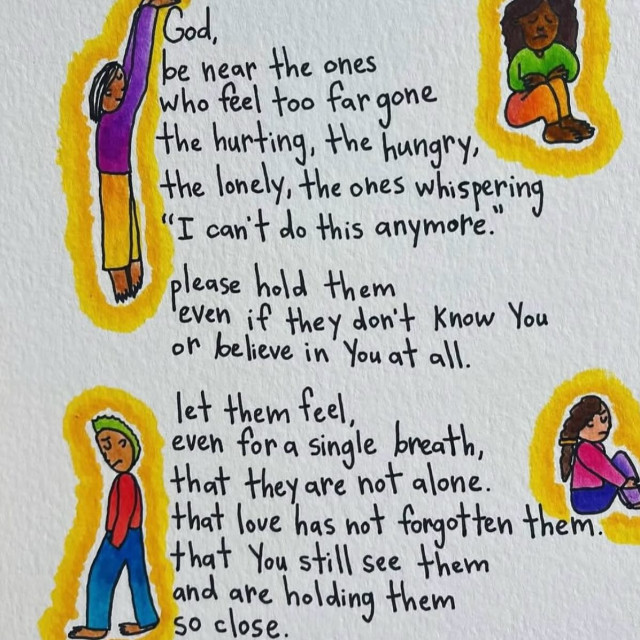 God,
be near the ones
who feel too far gone
the hurting, the hungry,
the lonely, the ones whispering
"I can't do this anymore."
please hold them
even if they don't know You
or believe in You at all.
let them feel,
even for a single breath,
that they are not alone.
that love has not forgotten them.
that You still see them
and are holding them
so close.